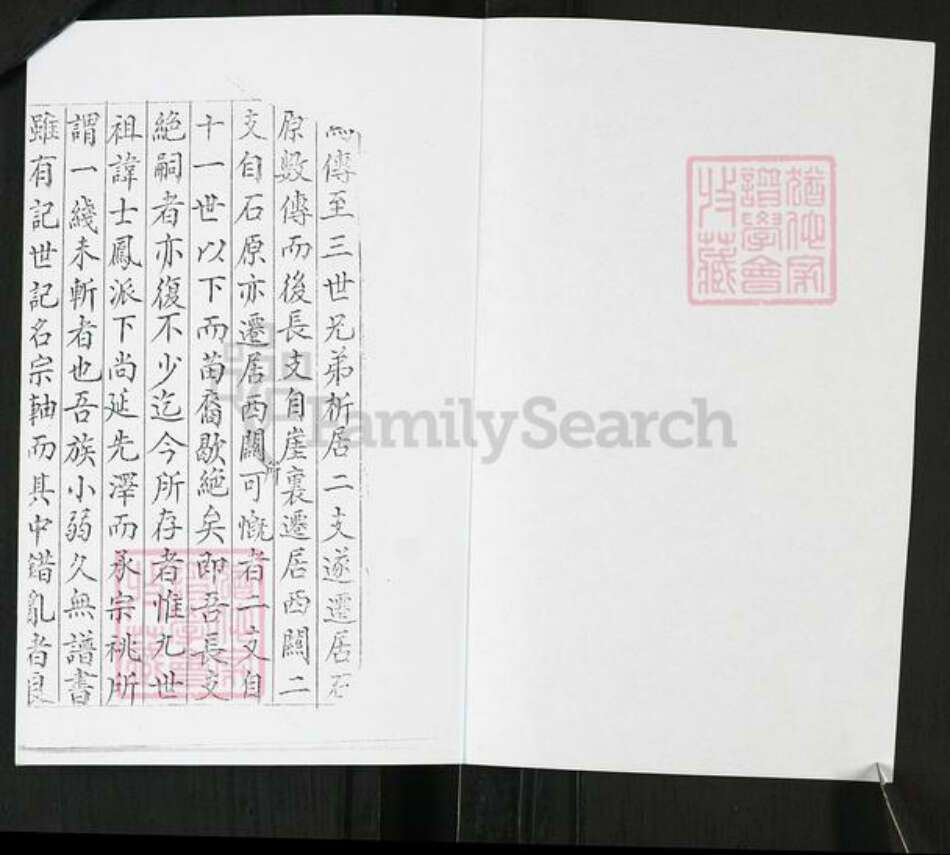 傳至三世兄弟析居二支遂遷居石
原數傳而後長支自崖裏遷居西關二
支自石原亦遷居西關可慨者二支自
十一世以下而苗裔歇絕矣即吾長支
絕嗣者亦復不少迄今所存者惟九世
祖諱士鳳派下尚延先澤而承宗祧所
謂一綫未斬者也吾族小弱久無譜書
雖有記世記名宗軸而其中錯亂者良
譜學會
收藏
FamilySearch